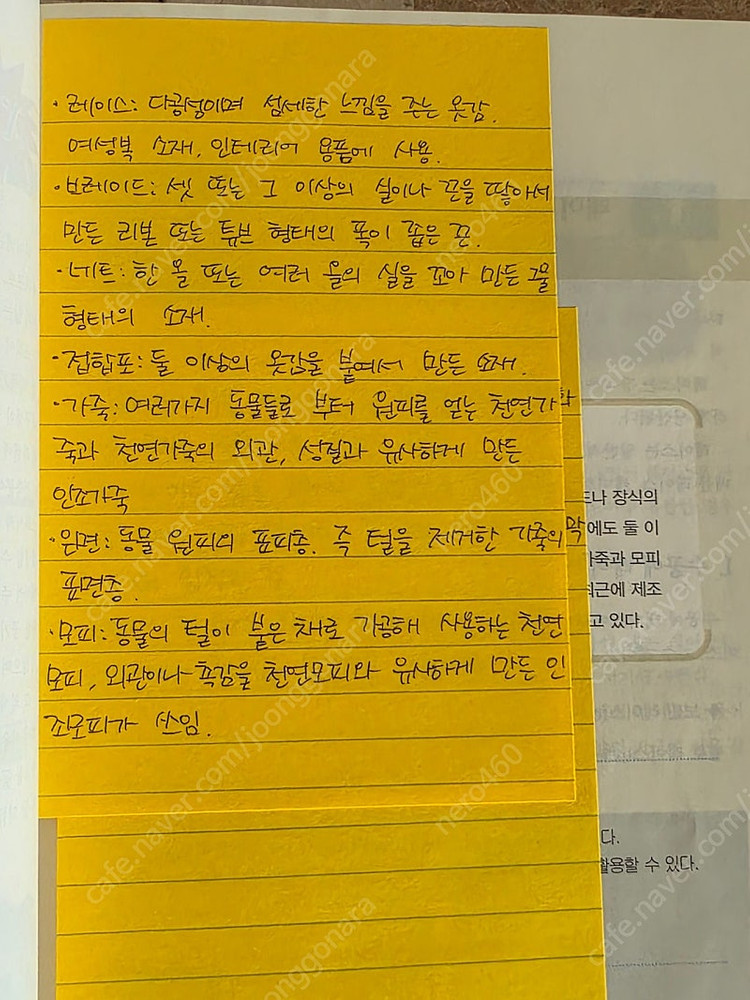 · 레이스: 다공성이며 섬세한 느낌을 주는 옷감.
여성복 소재, 인테리어 용품에 사용.
· 브레이드: 셋 또는 그 이상의 실이나 끈을 땋아서
만든 리본 또는 튜브 형태의 폭이 좁은 끈.
· 네트: 한 올 또는 여러 올의 실을 꼬아 만든 그물
형태의 소재.
· 접합포: 둘 이상의 옷감을 붙여서 만든 소재.
· 가죽: 여러가지 동물들로 부터 원피를 얻는 천연가
죽과 천연가죽의 외관, 성질과 유사하게 만든
인조가죽
· 은면: 동물 원피의 표피층. 즉 털을 제거한 가죽의
표면층.
· 모피: 동물의 털이 붙은 채로 가공해 사용하는 천연
모피, 외관이나 촉감을 천연모피와 유사하게 만든 인
조모피가 쓰임.
드나 장식의
에도 둘 이
가죽과 모피
최근에 제조
고 있다.
다.
활용할 수 있다.
cafe.naver.com/joonggonara
nero460